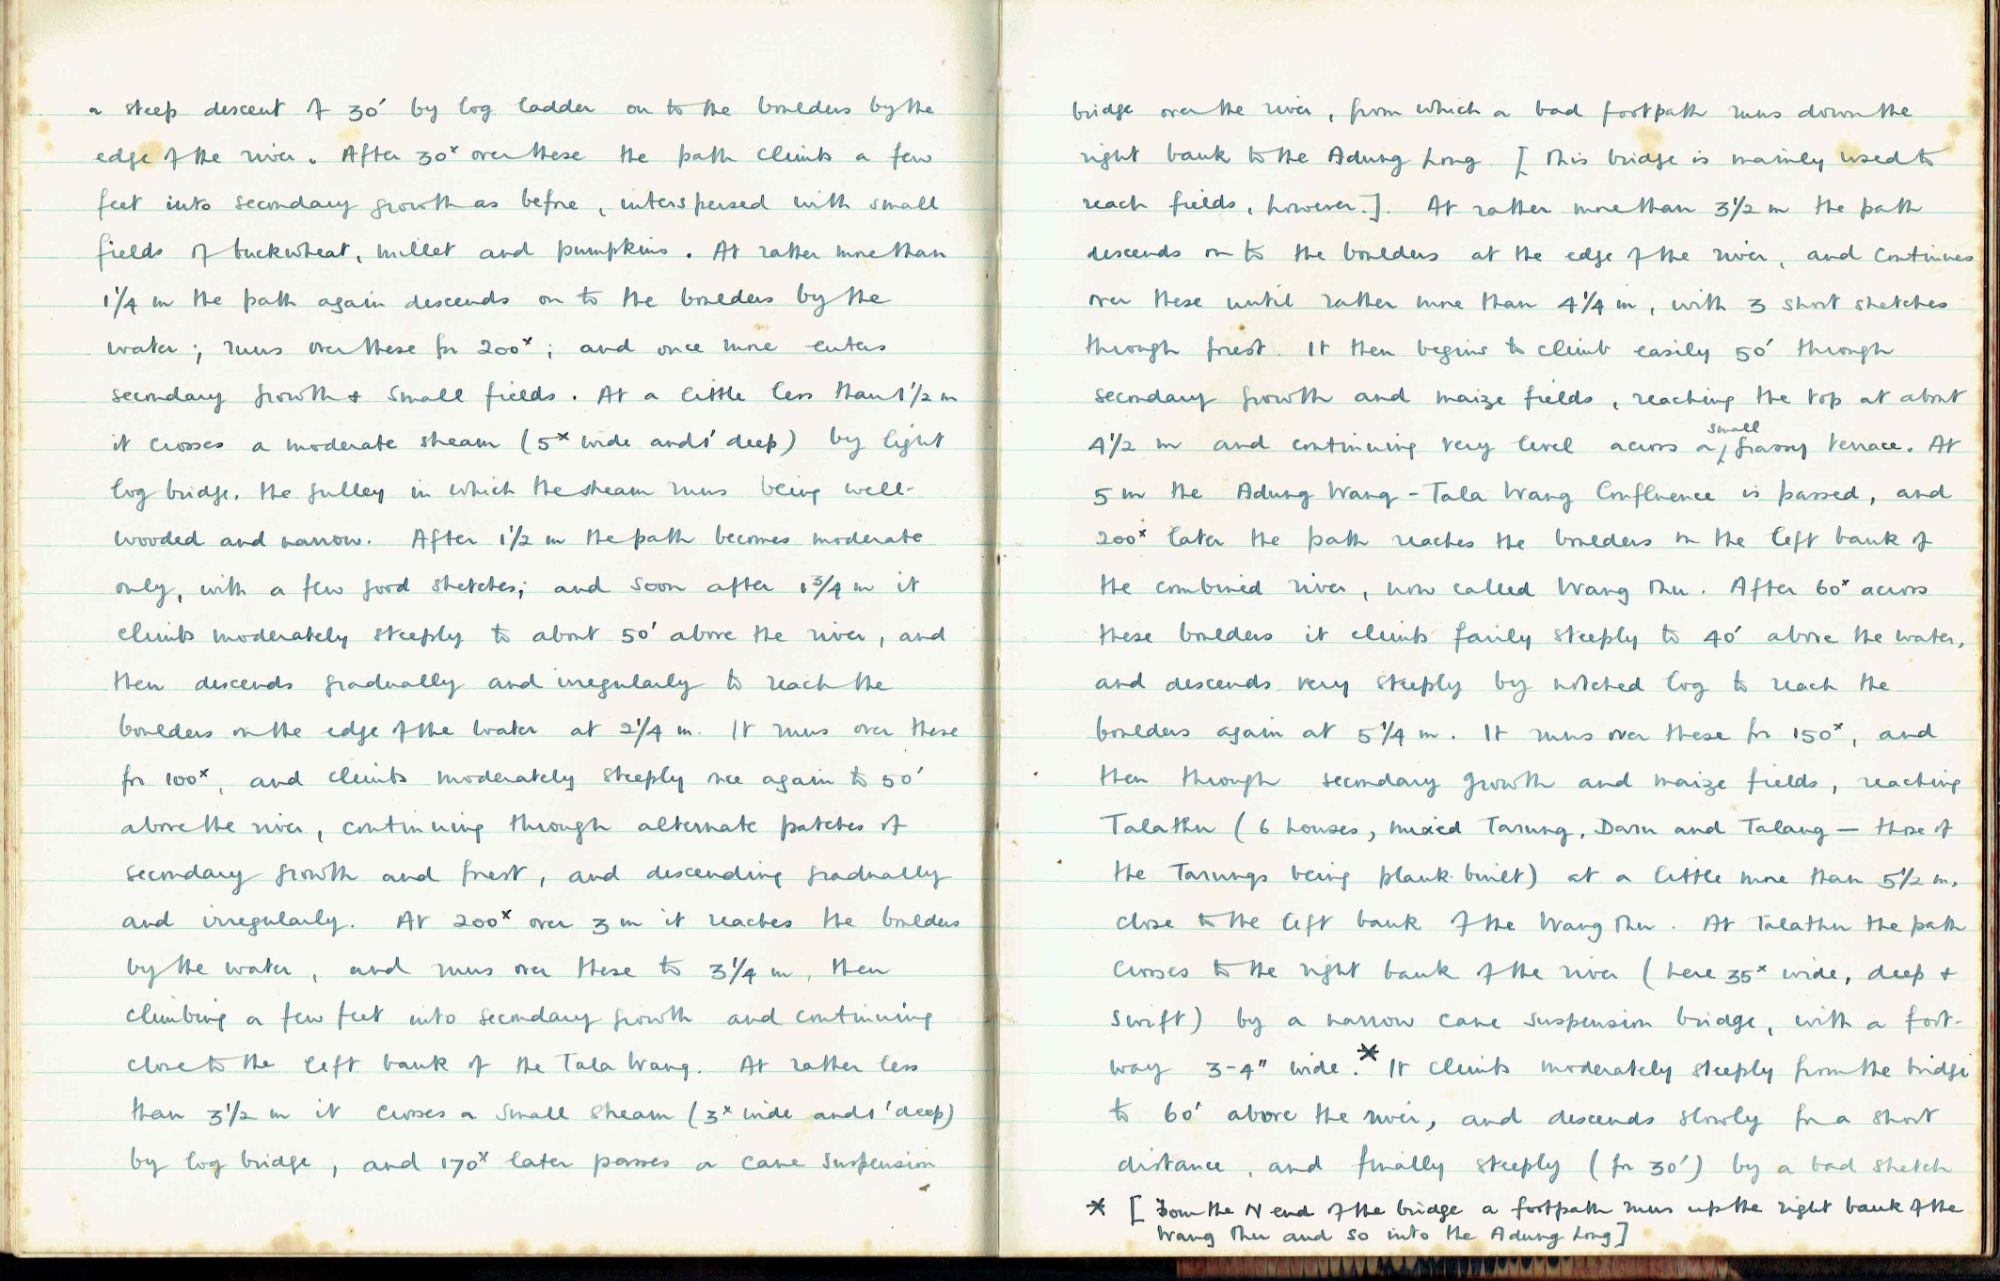 a steep descent of 30' by log ladder on to the boulders by the
edge of the river. After 30ˣ over these the path climbs a few
feet into secondary growth as before, interspersed with small
fields of buckwheat, millet and pumpkins. At rather more than
1¼ m the path again descends on to the boulders by the
water; runs over these for 200ˣ; and once more enters
secondary growth & small fields. At a little less than 1½ m
it crosses a moderate stream (5ˣ wide and 1' deep) by light
log bridge, the gulley in which the stream runs being well-
wooded and narrow. After 1½ m the path becomes moderate
only, with a few good stretches; and soon after 1¾ m it
climbs moderately steeply to about 50' above the river, and
then descends gradually and irregularly to reach the
boulders on the edge of the water at 2¼ m. It runs over these
for 100ˣ, and climbs moderately steeply once again to 50'
above the river, continuing through alternate patches of
secondary growth and forest, and descending gradually
and irregularly. At 200ˣ over 3 m it reaches the boulders
by the water, and runs over these to 3¼ m, then
climbing a few feet into secondary growth and continuing
close to the left bank of the Tala Wang. At rather less
than 3½ m it crosses a small stream (3ˣ wide and 1' deep)
by log bridge, and 170ˣ later passes a cane suspension
bridge over the river, from which a bad footpath runs down the
right bank to the Adung Long. [This bridge is mainly used to
reach fields, however.]. At rather more than 3½ m the path
descends on to the boulders at the edge of the river, and continues
over these until rather more than 4¼ m, with 3 short stretches
through forest. It then begins to climb easily 50' through
secondary growth and maize fields, reaching the top at about
4½ m and continuing very level across a small grassy terrace. At
5 m the Adung Wang - Tala Wang Confluence is passed, and
200ˣ later the path reaches the boulders on the left bank of
the combined river, now called Wang Thu. After 60ˣ across
these boulders it climbs fairly steeply to 40' above the water,
and descends very steeply by notched log to reach the
boulders again at 5¼ m. It runs over these for 150ˣ, and
then through secondary growth and maize fields, reaching
Talathu (6 houses, mixed Tarung, Daru and Talang — those of
the Tarungs being plank-built) at a little more than 5½ m,
close to the left bank of the Wang Thu. At Talathu the path
crosses to the right bank of the river (here 35ˣ wide, deep &
swift) by a narrow cane suspension bridge, with a foot-
way 3-4" wide.* It climbs moderately steeply from the bridge
to 60' above the river, and descends slowly for a short
distance, and finally steeply (for 30') by a bad stretch
* [From the N end of the bridge a footpath runs up the right bank of the
Wang Thu and so into the Adung Long]